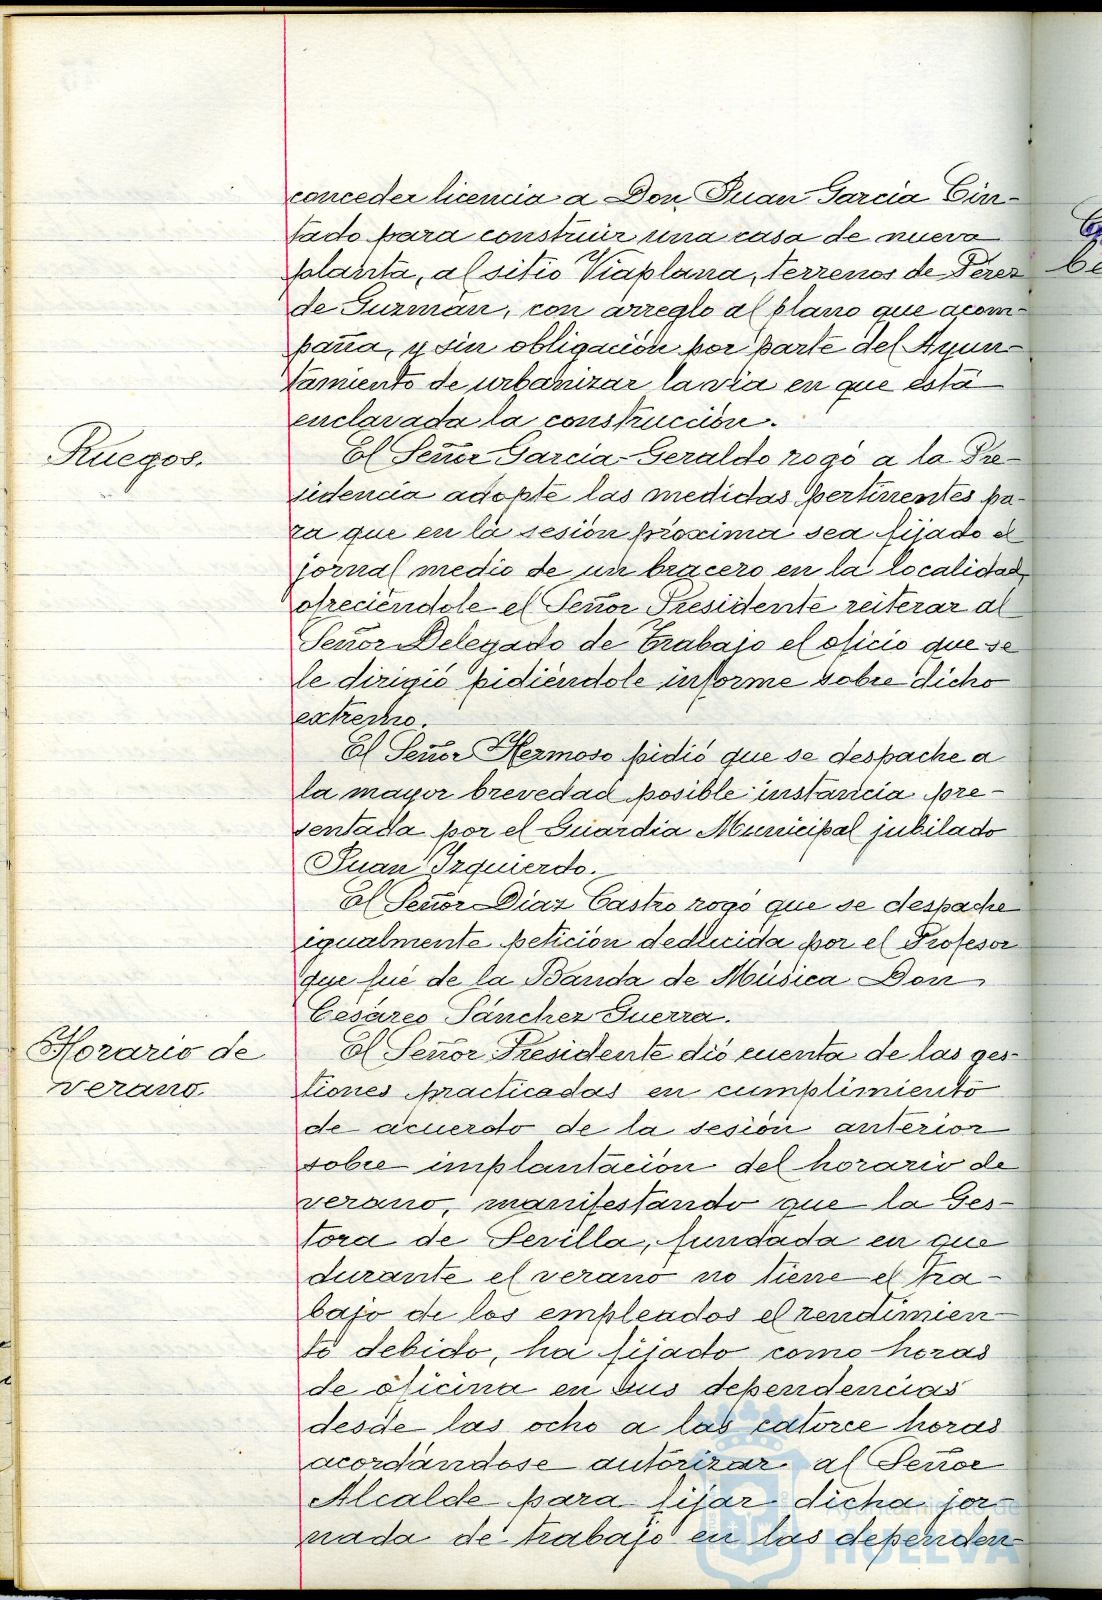 conceder licencia a Don Juan Garcia Cin-
tado para construir una casa de nueva
planta, al sitio Viaplana, terrenos de Pérez
de Guzmán, con arreglo al plano que acom-
paña, y sin obligación por parte del Ayun-
tamiento de urbanizar la via en que está
enclavada la construcción.
Ruegos.
El Señor Garcia-Geraldo rogó a la Pre-
sidencia adopte las medidas pertinentes pa-
ra que en la sesión próxima sea fijado el
jornal medio de un bracero en la localidad,
ofreciéndole el Señor Presidente reiterar al
Señor Delegado de Trabajo el oficio que se
le dirigió pidiéndole informe sobre dicho
extremo.
El Señor Hermoso pidió que se despache a
la mayor brevedad posible instancia pre-
sentada por el Guardia Municipal jubilado
Juan Izquierdo.
El Señor Diaz Castro rogó que se despache
igualmente petición deducida por el Profesor
que fué de la Banda de Música Don
Cesáreo Sánchez Guerra.
Horario de
verano.
El Señor Presidente dió cuenta de las ges-
tiones practicadas en cumplimiento
de acuerdo de la sesión anterior
sobre implantación del horario de
verano, manifestando que la Ges-
tora de Sevilla, fundada en que
durante el verano no tiene el tra-
bajo de los empleados el rendimien-
to debido, ha fijado como horas
de oficina en sus dependencias
desde las ocho a las catorce horas
acordándose autorizar al Señor
Alcalde para fijar dicha jor-
nada de trabajo en las dependen-
Ayuntamiento de
HUELVA